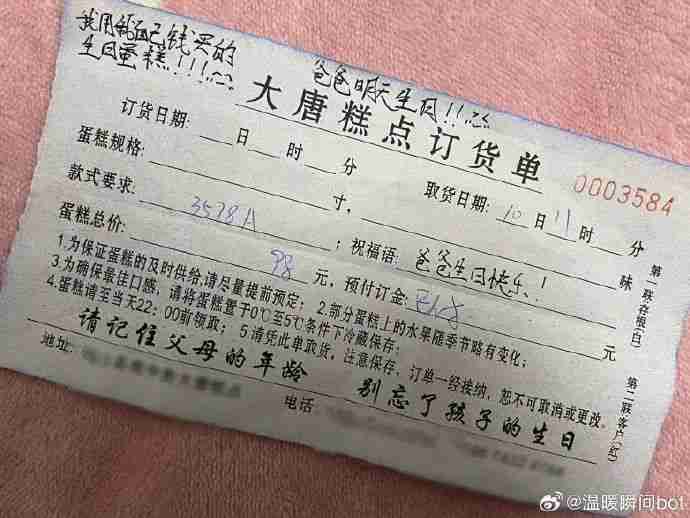 我用我自己钱买的
生日蛋糕!!!
爸爸明天生日!!
大唐糕点订货单
0003584
订货日期: 日 时 分 取货日期: 10 日 11 时 分
蛋糕规格: 寸, 味
款式要求: 3578A ;祝福语: 爸爸生日快乐!
蛋糕总价: 98 元,预付订金: 元
1.为保证蛋糕的及时供给,请尽量提前预定; 2.部分蛋糕上的水果随季节略有变化;
3.为确保最佳口感,请将蛋糕置于0℃至5℃条件下冷藏保存;
4.蛋糕请至当天22:00前领取; 5.请凭此单取货,注意保存,订单一经接纳,恕不可取消或更改。
请记住父母的年龄 别忘了孩子的生日
地址:
电话
第一联:存根(白) 第二联:客户(红)
@温暖瞬间bot